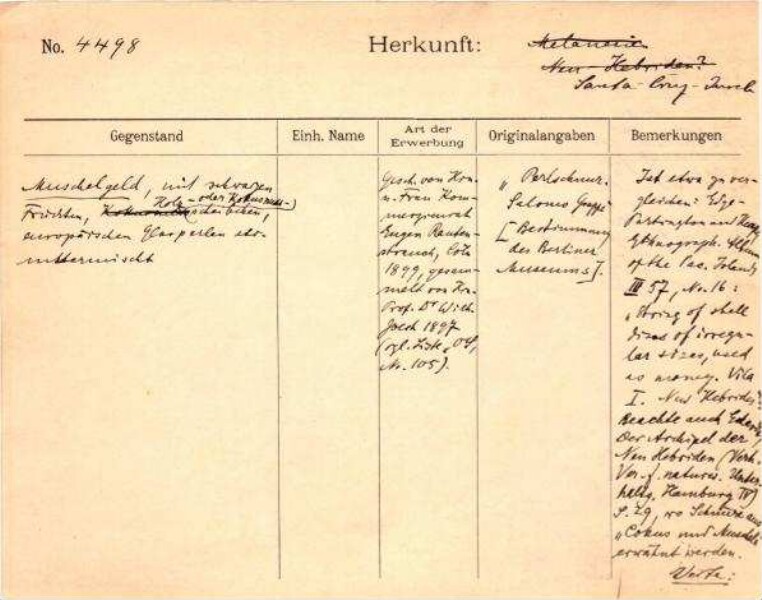 No. 4498
Herkunft:
Melanesien
Neu-Hebriden?
Santa Cruz-Inseln
Gegenstand
Einh. Name
Art der Erwerbung
Originalangaben
Bemerkungen
Muschelgeld, mit schwarzen
Früchten, Holz- oder Kokosnuss-
scheiben,
europäischen Glasperlen etc.
untermischt
Gesch. von Hrn.
u. Frau Kom-
merzienrat
Eugen Rauten-
strauch, Cöln
1899, gesam-
melt von Hn.
Prof. Dr Wilh.
Joest 1897
(vgl. Liste
Nr. 105).
„Perlschnur.
Salomo Gruppe
[Bestimmung
des Berliner
Museums].
Ist etwa zu ver-
gleichen: Edge-
Partington and Heape
Ethnograph. Album
of the Pac. Islands
III 57, No. 16:
„String of shell
discs of irregu-
lar sizes, used
as money. Vila
I. New Hebrides"
Beachte auch
Der Archipel der
Neu Hebriden (Verh.
Ver. f. naturw. Unter-
haltg. Hamburg IV)
S. 29, wo Schnüre aus
„Cokus und Muscheln
erwähnt werden.
Verte: